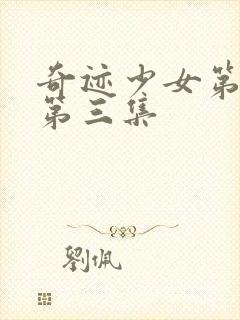 奇迹少女第
第三集
劉佩